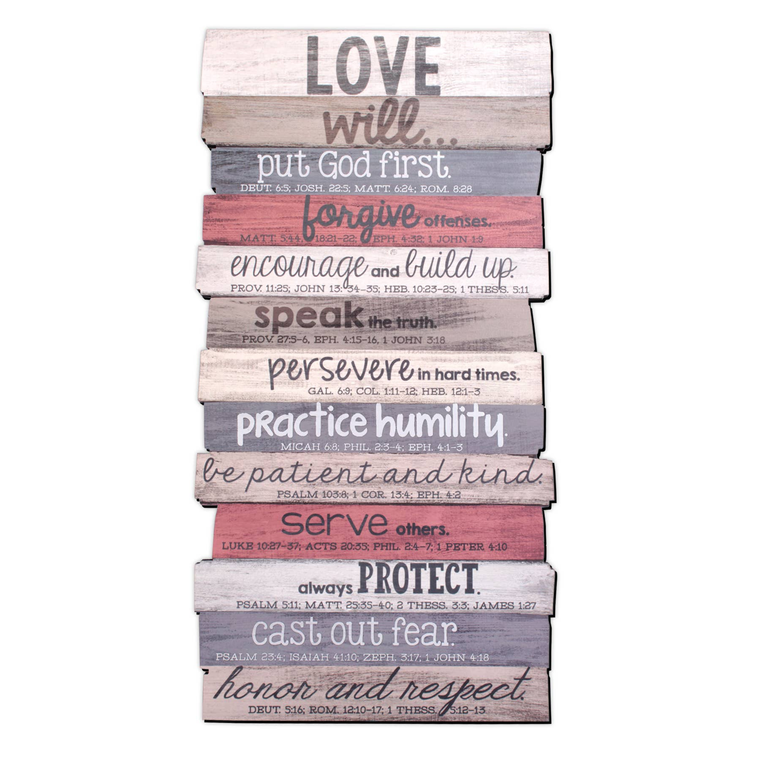 LOVE
will...
put God first.
DEUT. 6:5; JOSH. 22:5; MATT. 6:24; ROM. 8:28
forgive offenses.
MATT. 5:44, 18:21-22; EPH. 4:32; 1 JOHN 1:9
encourage and build up.
PROV. 11:25; JOHN 13:34-35; HEB. 10:23-25; 1 THESS. 5:11
speak the truth.
PROV. 27:5-6, EPH. 4:15-16, 1 JOHN 3:18
persevere in hard times.
GAL. 6:9; COL. 1:11-12; HEB. 12:1-3
practice humility.
MICAH 6:8; PHIL. 2:3-4; EPH. 4:1-3
be patient and kind.
PSALM 103:8; 1 COR. 13:4; EPH. 4:2
serve others.
LUKE 10:27-37; ACTS 20:35; PHIL. 2:4-7; 1 PETER 4:10
always PROTECT.
PSALM 5:11; MATT. 25:35-40; 2 THESS. 3:3; JAMES 1:27
cast out fear.
PSALM 23:4; ISAIAH 41:10; ZEPH. 3:17; 1 JOHN 4:18
honor and respect.
DEUT. 5:16; ROM. 12:10-17; 1 THESS. 5:12-13